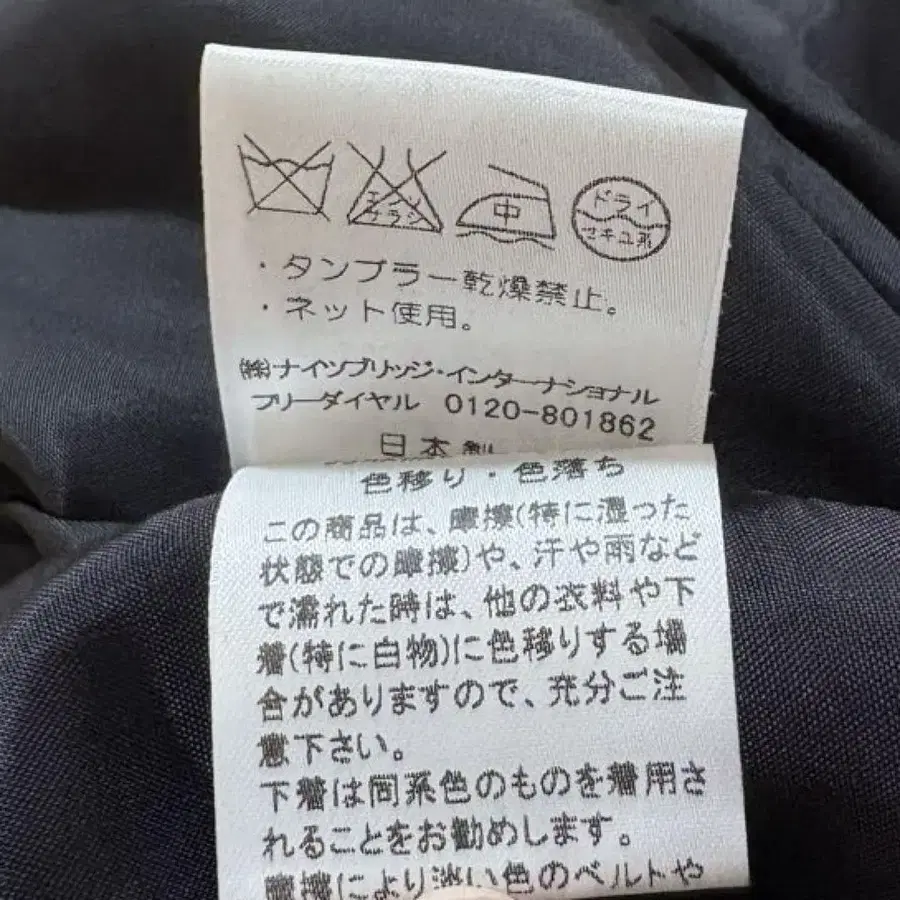 エンソ
サラシ
中
ドライ
セキユ系
・タンブラー乾燥禁止。
・ネット使用。
㈱ナイツブリッジ・インターナショナル
フリーダイヤル 0120-801862
日本製
色移り・色落ち
この商品は、摩擦(特に湿った
状態での摩擦)や、汗や雨など
で濡れた時は、他の衣料や下
着(特に白物)に色移りする場
合がありますので、充分ご注
意下さい。
下着は同系色のものを着用さ
れることをお勧めします。
摩擦により淡い色のベルトや